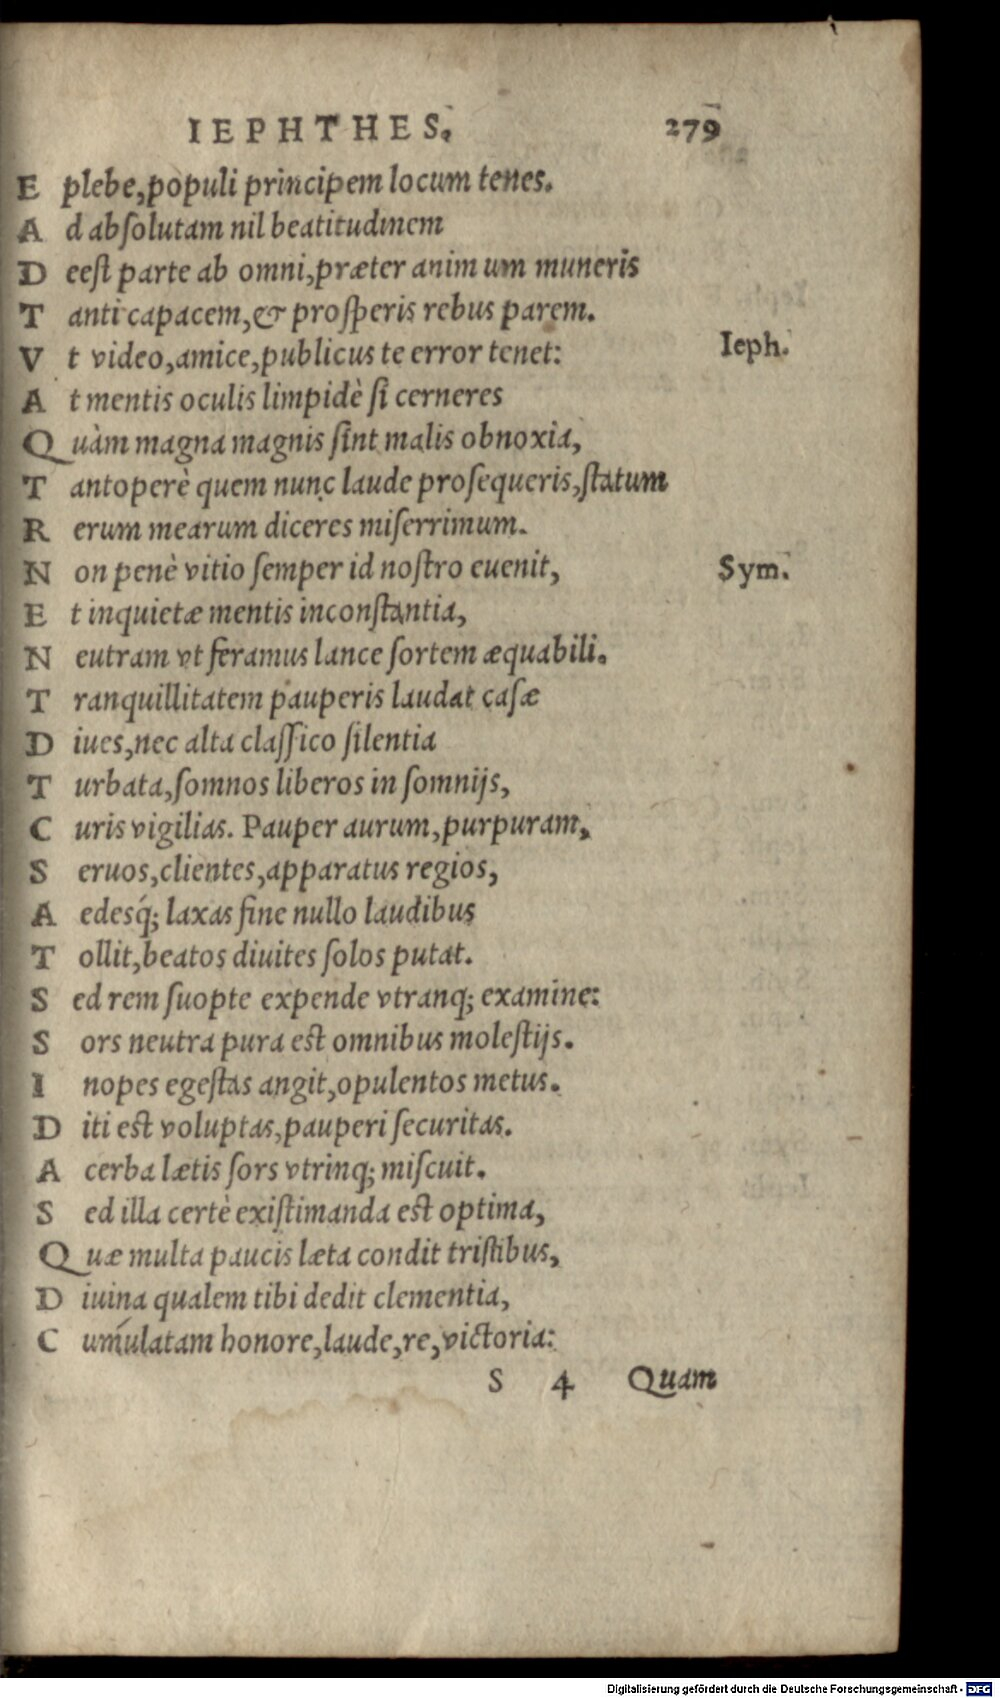 IEPHTHES. 279
E plebe, populi principem locum tenes.
A d absolutam nil beatitudinem
D eest parte ab omni, præter animum muneris
T anti capacem, & prosperis rebus parem.
V t video, amice, publicus te error tenet: Ieph.
A t mentis oculis limpidè si cerneres
Q uàm magna magnis sint malis obnoxia,
T antoperè quem nunc laude prosequeris, statum
R erum mearum diceres miserrimum.
N on penè vitio semper id nostro euenit, Sym.
E t inquietæ mentis inconstantia,
N eutram vt feramus lance sortem æquabili.
T ranquillitatem pauperis laudat casæ
D iues, nec alta classico silentia
T urbata, somnos liberos in somnijs,
C uris vigilias. Pauper aurum, purpuram,
S eruos, clientes, apparatus regios,
A edesq́; laxas fine nullo laudibus
T ollit, beatos diuites solos putat.
S ed rem suopte expende vtranq; examine:
S ors neutra pura est omnibus molestijs.
I nopes egestas angit, opulentos metus.
D iti est voluptas, pauperi securitas.
A cerba lætis sors vtrinq; miscuit.
S ed illa certè existimanda est optima,
Q uæ multa paucis læta condit tristibus,
D iuina qualem tibi dedit clementia,
C umulatam honore, laude, re, victoria:
S 4 Quam
Digitalisierung gefördert durch die Deutsche Forschungsgemeinschaft - DFG